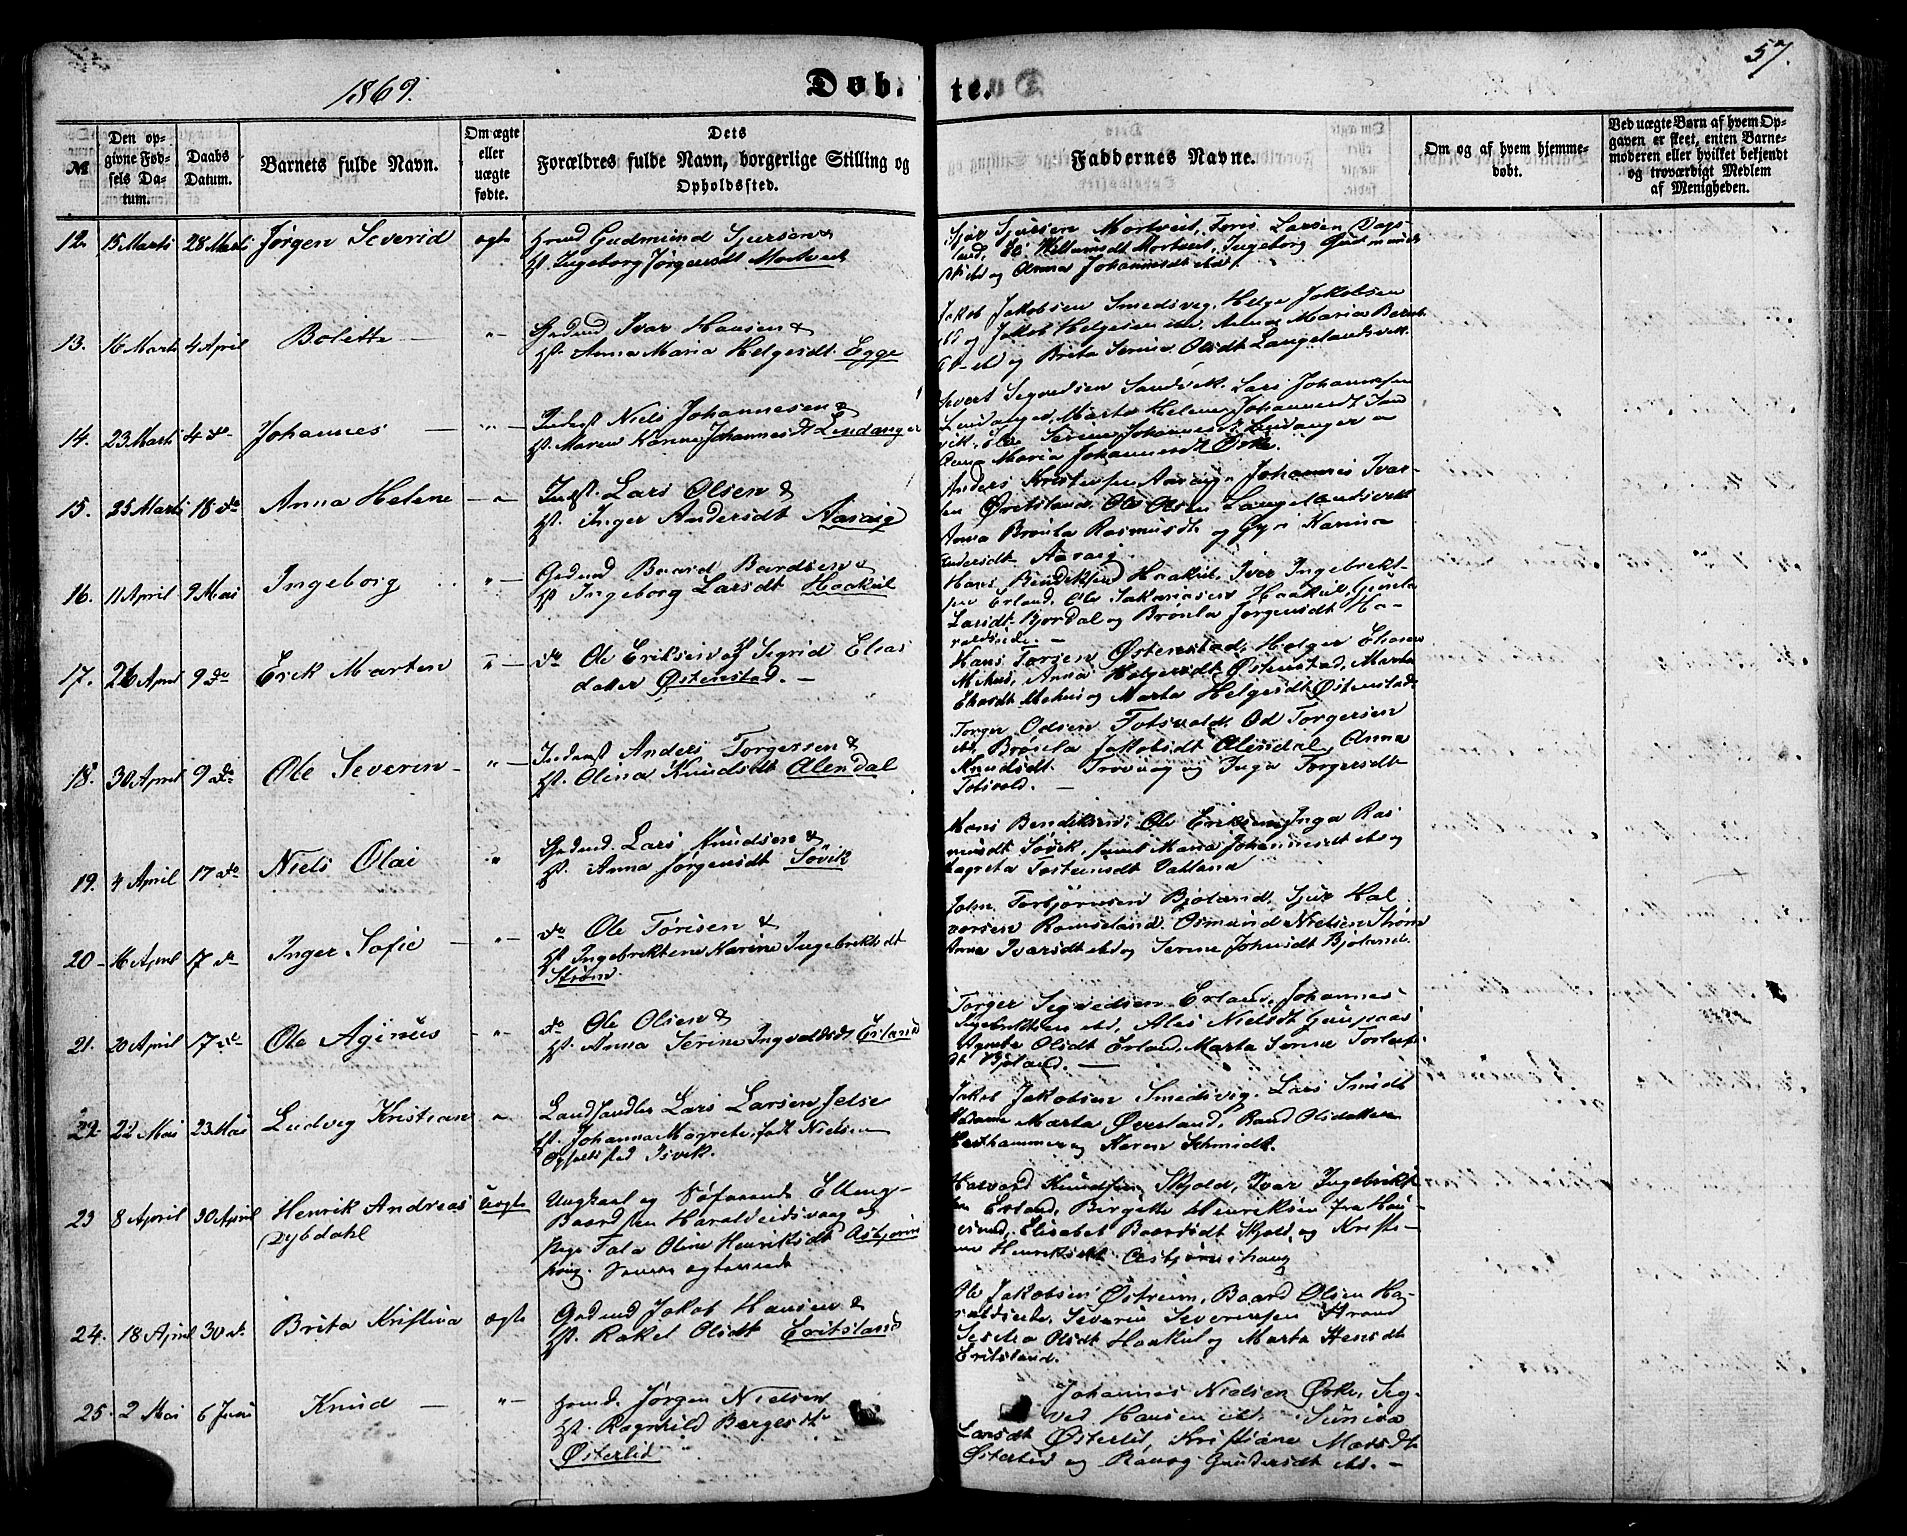 1869.
Døbte.
57.
№
Den opgivne Fødsels Datum.
Daabs Datum.
Barnets fulde Navn.
Om ægte eller uægte fødte.
Dets Forældres fulde Navn, borgerlige Stilling og Opholdssted.
Faddernes Navne.
Om og af hvem hjemmedøbt.
Ved uægte Børn af hvem Opgaven er skeet, enten Barnemoderen eller hvilket bekjendt og troværdigt Medlem af Menigheden.
12. 15 Marts 28 Marts Jørgen Severid ægte
Gudmund Sjursen &
Ingeborg Jørgensdt Mortveit
Sjur Sjursen Mortveit, Tøris Larsen Dags-
land, Mortveit, Ingeborg Gudmunds
og Anna Johannesdt
13. 16 Marts 4 April Bolette — "—
Gdmd Ivar Hansen &
Anna Maria Helgesdt. Egge
Jakob Jakobsen Smedsvig, Helge Jakobsen
og Jakob Helgesen Anna Maria
og Brita Serina Olsdt Langelandsvik.
14. 23 Marts 4 do Johannes — "—
Inderst Niels Johannesen &
Maren Karine Johannesdt Lindanger
Sivert Segvedsen Sandvik. Lars Johannesen
Lindanger, Marta Helene Johannesdt Sand
vik, Serine Johannesdt Lindanger
Anna Maria Johannesdt Øvre.
15. 25 Marts 18 do Anna Helene — "
Indst. Lars Olsen &
Inger Andersdt Aaraig
Anders Aaraig, Johannes Ivar-
sen Øvitsland, Ole Olsen Langelandsvik
Anna Brønla Rasmusdt og Gyri Karina
Andersdt Aaraig
16. 11 April 9 Mai Ingeborg "—
Gdmd Baard Bardsen &
Ingeborg Larsdt Haakul
Hans Bendiksen Haakul, Iver Ingebrikt-
sen Erland, Ole Sakariasen Haakul, Gunla
Larsdt Bjordal og Brønla Jørgensdt Ha-
raldseide. —
17. 26 April 9 do Erik Marten "—
do Ole Eriksen & Sigrid Elias
datter Østenstad. —
Hans Tørsen Østenstad, Helger
Mehus, Anna Helgesdt Østenstad, Marta
Mehus og Marta Helgesdt Østenstad
18. 30 April 9 do Ole Severin "—
Inderst Anders Torgersen &
Olena Knudsdt Alendal
Torger Odsen Totsvold, Od Torgersen
Brønla Jakobsdt Alendal, Anna
Knudsdt og Inga Torgersdt
Totsvold. —
19. 4 April 17 do Niels Olai "
Gdmd. Lars Knudsen &
Anna Jørgensdt Søvik
Hans Bendiksen, Ole Eriksen, Inga Ras
musdt Søvik, samt Maria Johannesdt og
Tosteinsdt Vatland
20 16 April 17 do Inger Sofie — "—
do Ole Tørisen &
Ingebriktene Karine Ingebriktsdt
Strøm.
John Torbjørnsen Bjoland, Sjur Hal
vorsen Ramsland, Osmund Nielsen Strøm
Anna Ivarsdt og Serine Johnsdt Bjoland.
21. 20 April 17 do Ole Aginus — "—
do Ole Olsen &
Anna Serine Ingvaldsdt Erland
Torger Segvedsen Erland, Johannes
Ingebriktsen Ales Nielsdt
Agnete Olsdt Erland, Marta Serine
Bjoland. —
22 22 Mai 23 Mai Ludvig Kristian "
Landhandler Lars Larsen Jelse
Johanna Magrete, født Nielsen
Opholdssted Isvik.
Jakob Jakobsen Smedsvig. Lars Smidt
Madame Marta Øvesland, Olsdatter
og Karen Schmidt.
23 8 April 30 April Henrik Andreas Uægte
Dybdahl
Ungkarl og Søfarende Elling
Baardsen Haraldeidsvaag og
Pige Tala Oline Henriksdt Asbjørns
Halvard Knudsen Skjold, Ivar Ingebrikt
sen Erland, Bergette Henriksen fra Hau-
gesund, Elisabet Baardsdt Skjold, og Kristi-
ne Henriksdt Asbjørnshaug
24. 18 April 30 do Brita Kristina ægte
Gdmd Jakob Hansen &
Rakel Olsdt Eritsland
Ole Jakobsen Østreim, Baard Olsen Ha-
raldseide, Severin Severinsen Strand
Olsdt Haakul og Marta Hansdt
Eritsland.
25. 2 Mai 6 Juni Knud — "—
Jørgen Nielsen
Ragnhild Bergesdt
Østerlid
Johannes Nielsen Øvre, Seg
ved Hansen Suniva
Larsdt Østerlid Kristiane Madsdt
Østerlid og Ranvog Gundersdt —